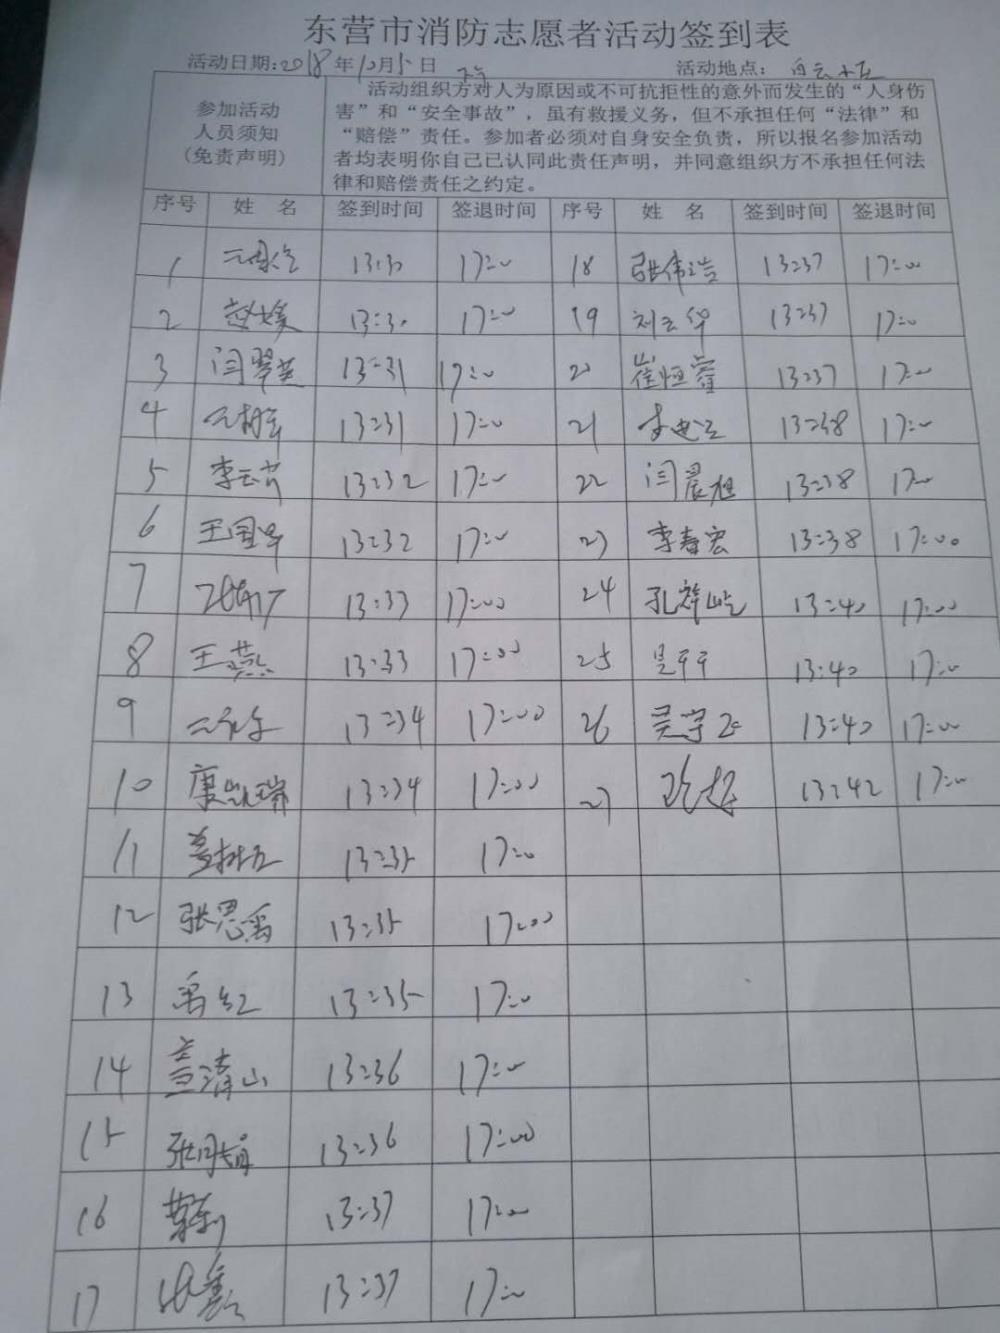 东营市消防志愿者活动签到表
活动日期:2018年10月15日 活动地点:白云小区
参加活动
人员须知
(免责声明)
活动组织方对人为原因或不可抗拒性的意外而发生的“人身伤
害”和“安全事故”，虽有救援义务，但不承担任何“法律”和
“赔偿”责任。参加者必须对自身安全负责，所以报名参加活动
者均表明你自己已认同此责任声明，并同意组织方不承担任何法
律和赔偿责任之约定。
序号 姓 名 签到时间 签退时间 序号 姓 名 签到时间 签退时间
1 13:30 17:00 18 张伟浩 13:37 17:00
2 赵媛 13:30 17:00 19 刘云华 13:37 17:00
3 闫翠英 13:31 17:00 20 崔恒 13:37 17:00
4 13:31 17:00 21 李 13:38 17:00
5 李云 13:32 17:00 22 闫晨旭 13:38 17:00
6 王国 13:32 17:00 23 李春宏 13:38 17:00
7 13:33 17:00 24 孔祥屹 13:40 17:00
8 王燕 13:33 17:00 25 吴 13:40 17:00
9 13:34 17:00 26 吴宇 13:40 17:00
10 康凯瑞 13:34 17:00 27 13:42 17:00
11 13:35 17:00
12 张思禹 13:35 17:00
13 禹红 13:35 17:00
14 盖清山 13:36 17:00
15 张月娟 13:36 17:00
16 13:37 17:00
17 13:37 17:00